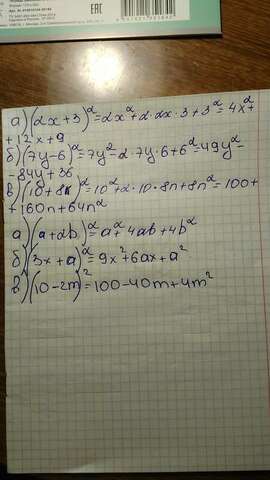 а) (2x+3)²=2x²+2·2x·3+3²=4x²+
+12x+9
б) (7y-6)²=7y²-2·7y·6+6²=49y²-
-84y+36
в) (10+8к)²=10²+2·10·8n+8n²=100+
+160n+64n²
а) (a+2b)²=a²+4ab+4b²
б) (3x+a)²=9x²+6ax+a²
в) (10-2m)²=100-40m+4m²